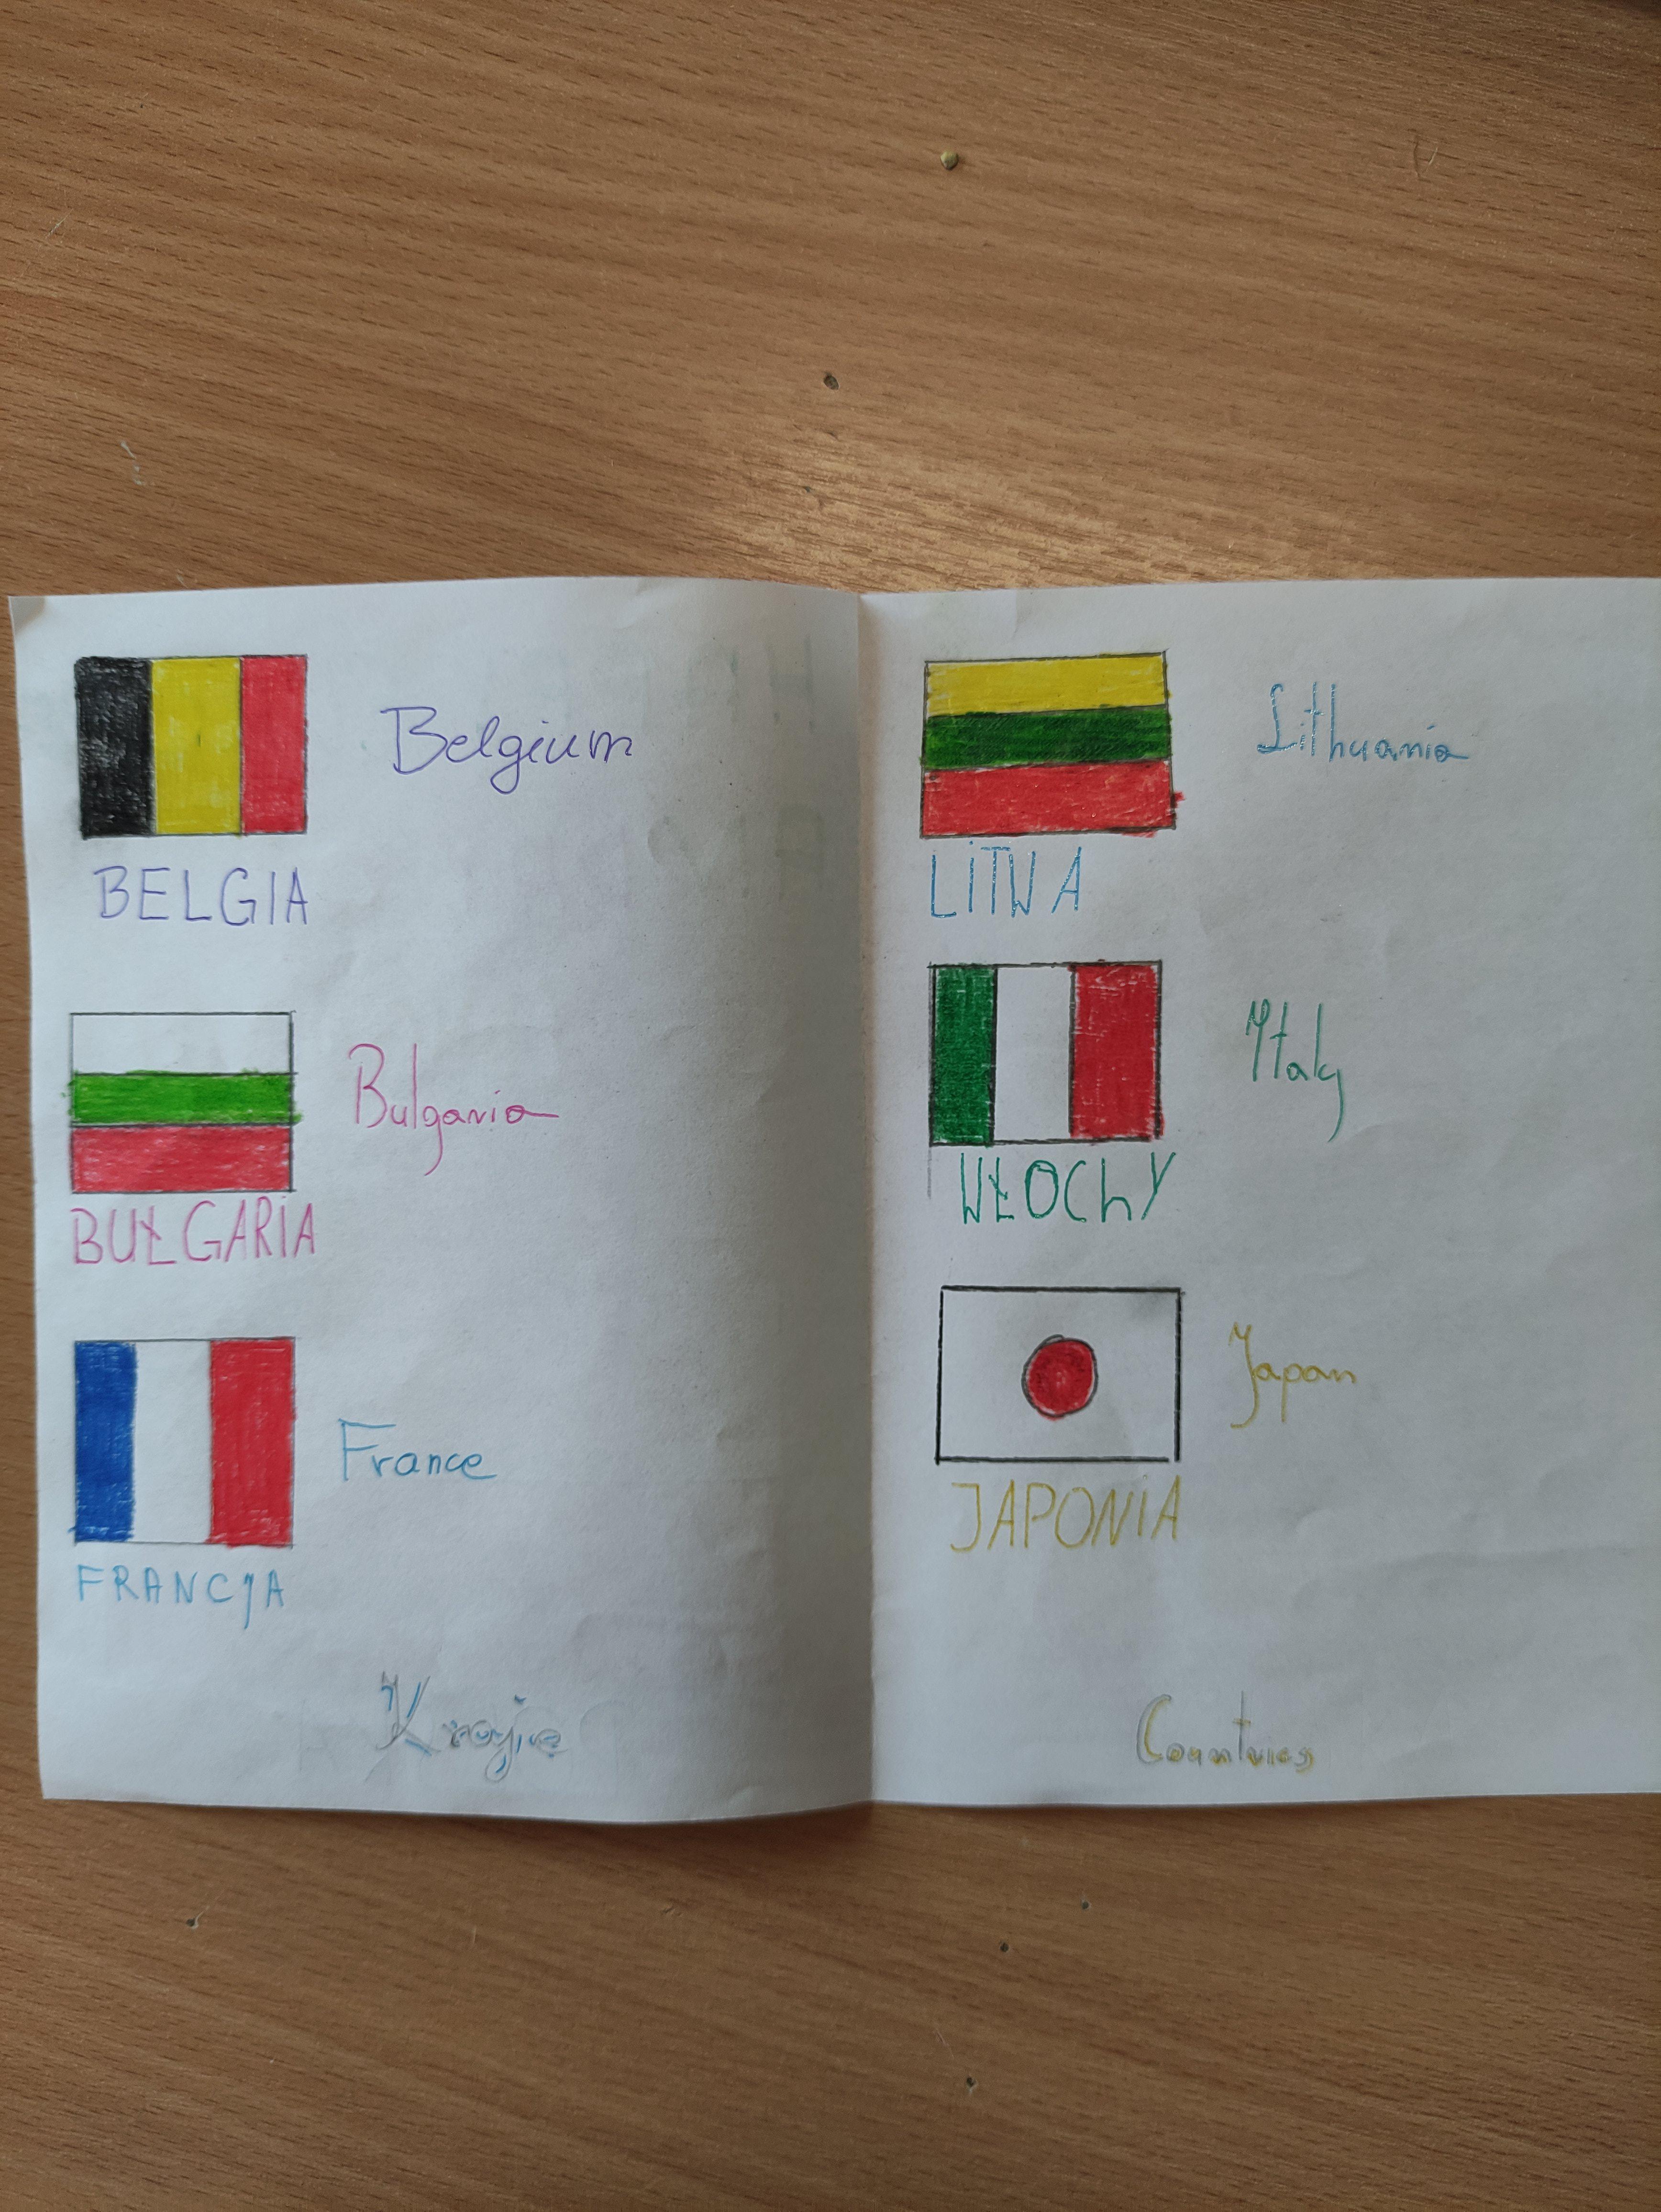 Belgium
BELGIA
Bulgaria
BUŁGARIA
France
FRANCJA
Kraje
Lithuania
LITWA
Italy
WŁOCHY
Japan
JAPONIA
Countries